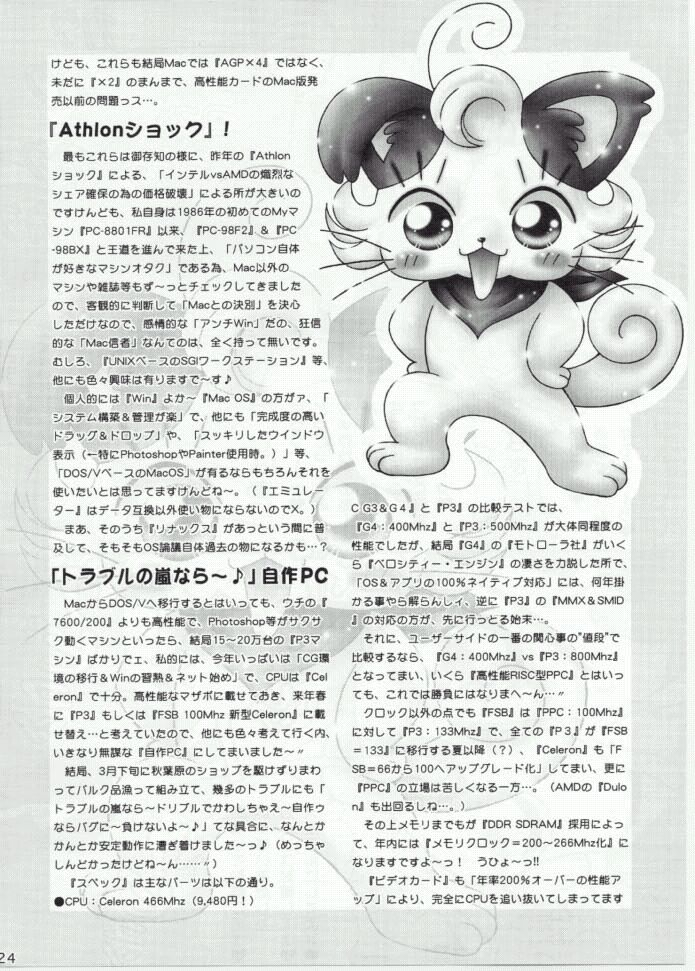 けども、これらも結局Macでは『AGP×4』ではなく、
未だに『×2』のまんまで、高性能カードのMac版発
売以前の問題っス…。
『Athlonショック』！
　最もこれらは御存知の様に、昨年の『Athlon
ショック』による、「インテルvsAMDの熾烈な
シェア確保の為の価格破壊」による所が大きいの
ですけんども、私自身は1986年の初めてのMyマ
シン『PC-8801FR』以来、『PC-98F2』&『PC
-98BX』と王道を進んで来た上、「パソコン自体
が好きなマシンオタク」である為、Mac以外の
マシンや雑誌等もず〜っとチェックしてきました
ので、客観的に判断して「Macとの決別」を決心
しただけなので、感情的な「アンチWin」だの、狂信
的な「Mac信者」なんてのは、全く持って無いです。
むしろ、『UNIXベースのSGIワークステーション』等、
他にも色々興味は有りますで〜す♪
　個人的には『Win』よか〜『Mac OS』の方がァ、「
システム構築＆管理が楽」で、他にも「完成度の高い
ドラッグ＆ドロップ」や、「スッキリしたウインドウ
表示（←特にPhotoshopやPainter使用時。）」等、
「DOS/VベースのMacOS」が有るならもちろんそれを
使いたいとは思ってますけんどね〜。（『エミュレー
ター』はデータ互換以外使い物にならないのでX。）
　まあ、そのうち『リナックス』があっという間に普
及して、そもそもOS論議自体過去の物になるかも…？
「トラブルの嵐なら〜♪」自作PC
　MacからDOS/Vへ移行するとはいっても、ウチの『
7600/200』よりも高性能で、Photoshop等がサクサ
ク動くマシンといったら、結局15〜20万台の『P3マ
シン』ばかりでェ、私的には、今年いっぱいは「CG環
境の移行＆Winの習熟＆ネット始め」で、CPUは『Cel
eron』で十分。高性能なマザボに載せておき、来年春
に『P3』もしくは『FSB 100Mhz 新型Celeron』に載
せ替え…と考えていたので、他にも色々考えて行く内、
いきなり無謀な『自作PC』にしてまいました〜〃
　結局、3月下旬に秋葉原のショップを駆けずりまわ
ってバルク品漁って組み立て、幾多のトラブルにも「
トラブルの嵐なら〜ドリブルでかわしちゃえ〜自作ゥ
ならバグに〜負けないよ〜♪」てな具合に、なんとか
かんとか安定動作に漕ぎ着けました〜っ♪（めっちゃ
しんどかったけどね〜ん……〃）
　『スペック』は主なパーツは以下の通り。
●CPU：Celeron 466Mhz（9,480円！）
C G3＆G4』と『P3』の比較テストでは、
『G4：400Mhz』と『P3：500Mhz』が大体同程度の
性能でしたが、結局『G4』の『モトローラ社』がいく
ら『ベロシティー・エンジン』の凄さを力説した所で、
「OS＆アプリの100％ネイティブ対応」には、何年掛
かる事やら解らんしィ、逆に『P3』の『MMX＆SMID
』の対応の方が、先に行っとる始末…。
　それに、ユーザーサイドの一番の関心事の"値段"で
比較するなら、『G4：400Mhz』vs『P3：800Mhz』
となってまい、いくら『高性能RISC型PPC』とはいっ
ても、これでは勝負にはなりまへ〜ん…〃
　クロック以外の点でも『FSB』は『PPC：100Mhz』
に対して『P3：133Mhz』で、全ての『P3』が『FSB
＝133』に移行する夏以降（？）、『Celeron』も「F
SB=66から100へアップグレード化」してまい、更に
『PPC』の立場は苦しくなる一方…。（AMDの『Dulo
n』も出回るしね…。）
　その上メモリまでもが『DDR SDRAM』採用によっ
て、年内には『メモリクロック＝200〜266Mhz化』に
なりますですよ〜っ！　うひょ〜っ!!
　『ビデオカード』も「年率200％オーバーの性能ア
ップ」により、完全にCPUを追い抜いてしまってます
24